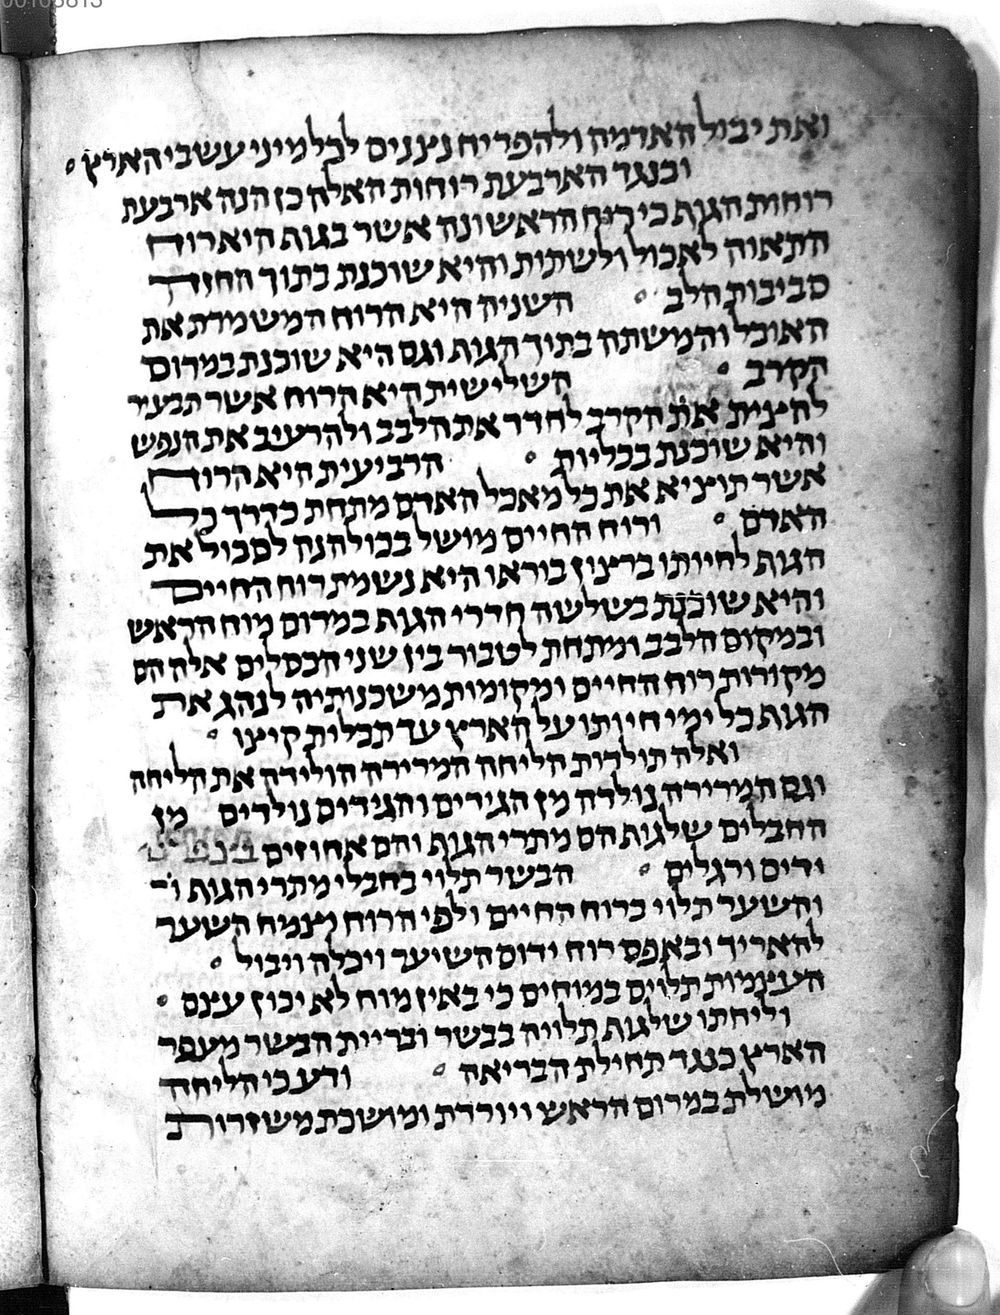 00105813
ואת יבול האדמה ולהפריח נצנים לכל מיני עשבי הארץ
וכנגד הארבעת רוחות האלה כן הנה ארבעת
רוחות הגות כי רוח הראשונה אשר בגות היא רוח
התאוה לאכול ולשתות והיא שוכנת בתוך החזה
סביבות הלב השנית היא הרוח המשמרת את
האוכל והמשתה בתוך הגות וגם היא שוכנת במרום
הקרב השלישית היא הרוח אשר תבעיר
את הקרב לחדר את הלבב ולהרעיב את הנפש
והיא שוכנת בכליות הרביעית היא הרוח
אשר תוציא את כל מאכל האדם מתחת כדרך כל
האדם ורוח החיים מושל בכולהנה לסבול את
הגות לחיותו ברצון בוראו היא נשמת רוח החיים
והיא שוכנת בשלשה חדרי הגות במרום מוח הראש
ובמקום הלבב ומתחת לטבור בין שני הכסלים אלה הם
מקורות רוח החיים ומקומות משכנותיה לנהג את
הגות כל ימי חיותו על הארץ עד תכלית קיצו
ואלה תולדות הליחה המרירה הולידה את הליחה
וגם המרירה נולדה מן הגידים והגידים נולדים מן
החבלים שלגות הם מתרי הגות והם אחוזים
ידים ורגלים הבשר תלוי בחבלי מתרי הגות
והשער תלוי ברוח החיים ולפי הרוח יצמח השער
להאריך ובאפס רוח ידום השיער ויכלה ויבול
העצמות תלוים במוחים כי באין מוח לא יכון עצם
וליחתו שלגות תלויה בבשר ובריית הבשר מעפר
הארץ כנגד תחילת הבריאה ודע כי הליחה
מושלת במרום הראש ויורדת ומושכת משזרות